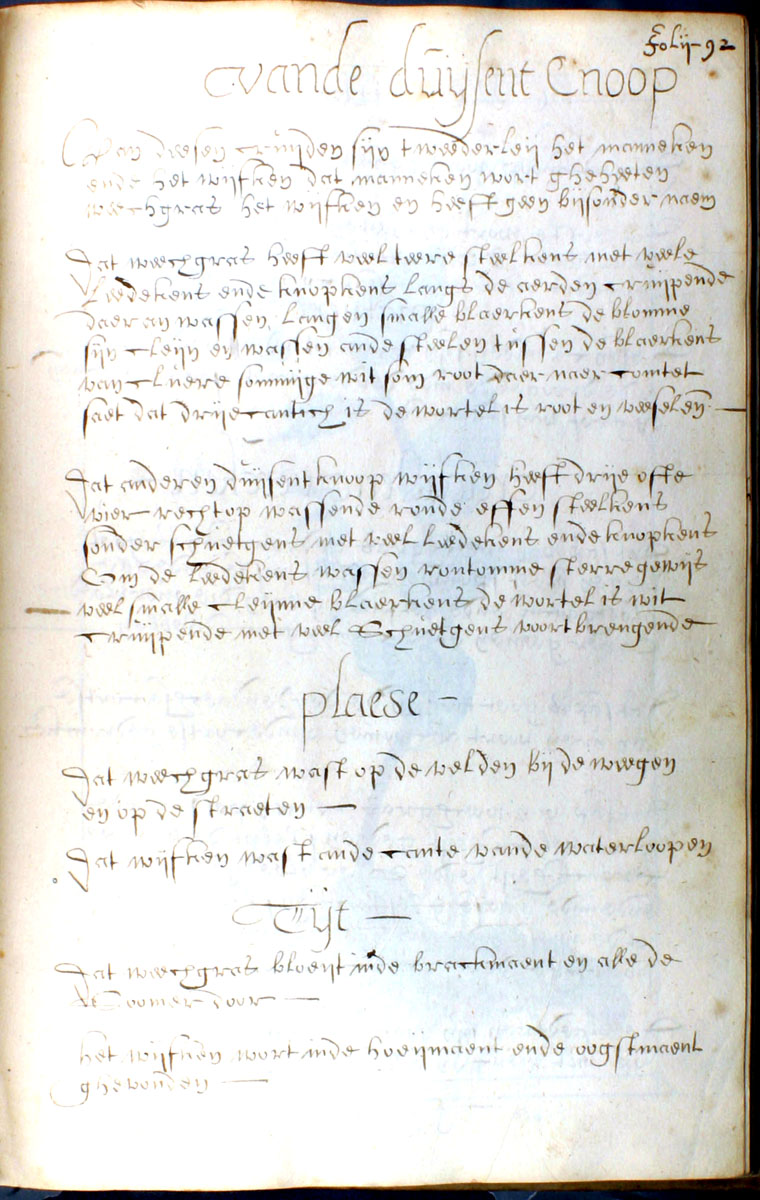 Folij 92
vande duijsent Cnoop
Van deesen cruijden sijn tweederleij het manneken
ende het wijfken dat manneken wort gheheeten
weechgras het wijfken en heeft geen bijsonder naem
Dat weechgras heeft veel teere steelkens met veele
Leedekens ende knopkens langs de aerden cruijpende
daer an wassen langen smalle blaerkens de blomme
sijn cleijn en wassen ande steelen tussen de blaerkens
van cluere sommige wit som root daer naer comtet
saet dat drijecantich is de wortel is root en veeselen
Dat anderen duijsentknoop wijfken heeft drije ofte
vier recht op wassende ronde effen steelkens
sonder schuetgens met veel leedekens ende knopkens
Om de leedekens wassen rontomme sterre gewijs
veel smalle cleijnne blaerkens de wortel is wit
cruijpende met veel Schuetgens voortbrengende
plaese
Dat weechgras wast op de velden bij de weegen
en op de straeten
Dat wijfken wast ande cante vande waterloopen
Tijt
Dat weechgras bloeijt inde brackmaent en alle de
Soomer door
het wijfken wort inde hoeijmaent ende oogstmaent
ghevonden